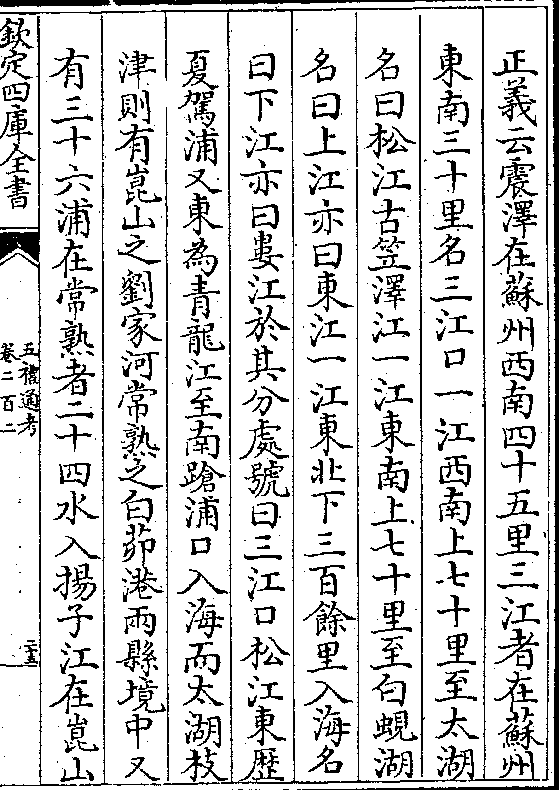 正義云震澤在蘇州西南四十五里三江者在蘇州
東南三十里名三江口一江西南上七十里至太湖
名曰松江古笠澤江一江東南上七十里至白蜆湖
名曰上江亦曰東江一江東北下三百餘里入海名
曰下江亦曰婁江於其分處號曰三江口松江東歷
夏駕浦又東為青龍江至南蹌浦口入海而太湖枝
津則有崑山之劉家河常熟之白茆港兩縣境中又
有三十六浦在常熟者二十四水入揚子江在崑山
欽定四庫全書
五禮通考
卷二百二
二十五